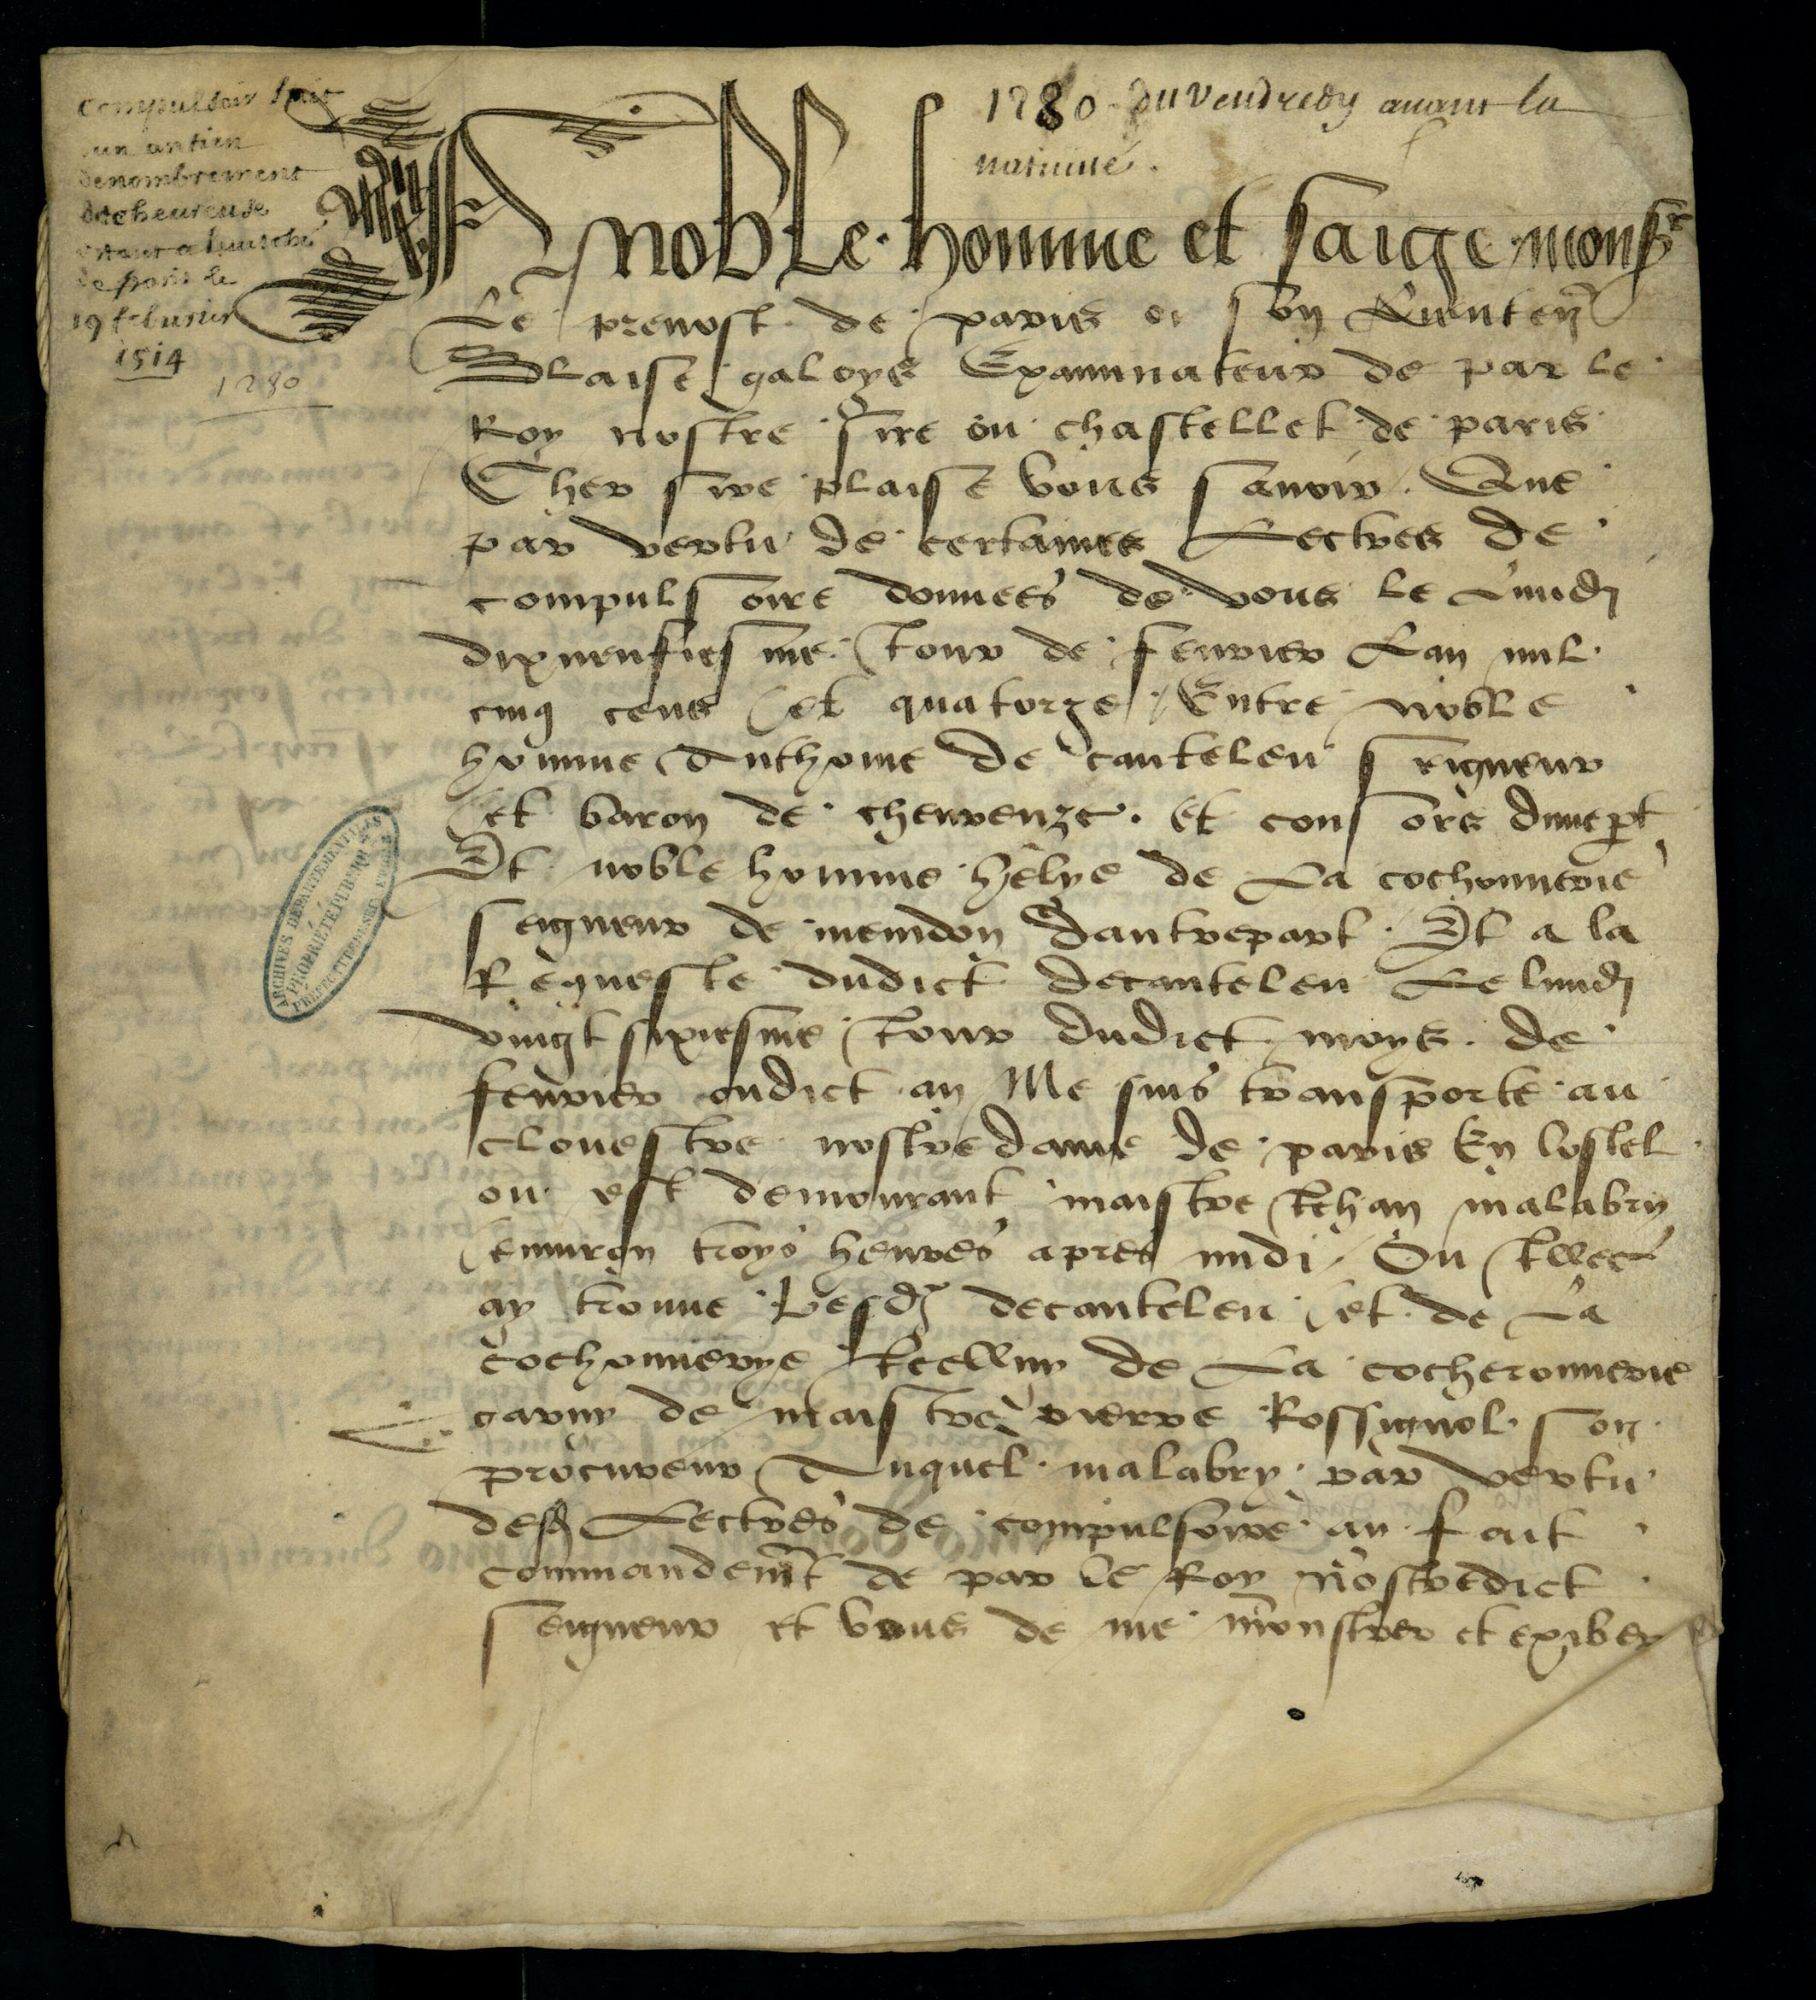 compulsoir fait
un antien
denombrement
de cheureuse
de paris le
19 feburier
1514
1280
1280 du Vendredy auant la
natiuité.
A noble homme et saige monsr
Le preuost de paris ou son Lieuten
Blaise galoys Examinateur de par le
Roy nostre sire ou chastellet de paris
Cher sire plaise vous sauoir Que
par vertu de certaines Lectres de
compulsoire donnees de vous le Lundj
dixneufiesme Iour de feurier Lan mil
cinq cens et quatorze Entre noble
homme Anthoine de canteleu seigneur
et baron de cheureuze. et consors dunept
Et noble homme helye de La cochonnerie
seigneur de meudon dautrepart. Et a la
Requeste dudict decanteleu Le lundj
vingtsixiesme Iour dudict moys de
feurier oudict an Me suis transporte au
clouestre nostredame de paris En lostel
ou est demourant maistre Iehan malabry
enuiron troys heures apres midi Ou Illec
ay trouue Lesd decanteleu et de La
cochonnerye Icelluy de La cocheronnerie
garny de maistre pierre Rossignol son
procureur Auquel malabry par vertu
desd Lectres de compulsoire ay fait
commandemt de par le Roy nostredict
seigneur et vous de me monstrer et exiber
ARCHIVES DEPARTEMENTALES
PROPRIÉTÉ PUBLIQUE